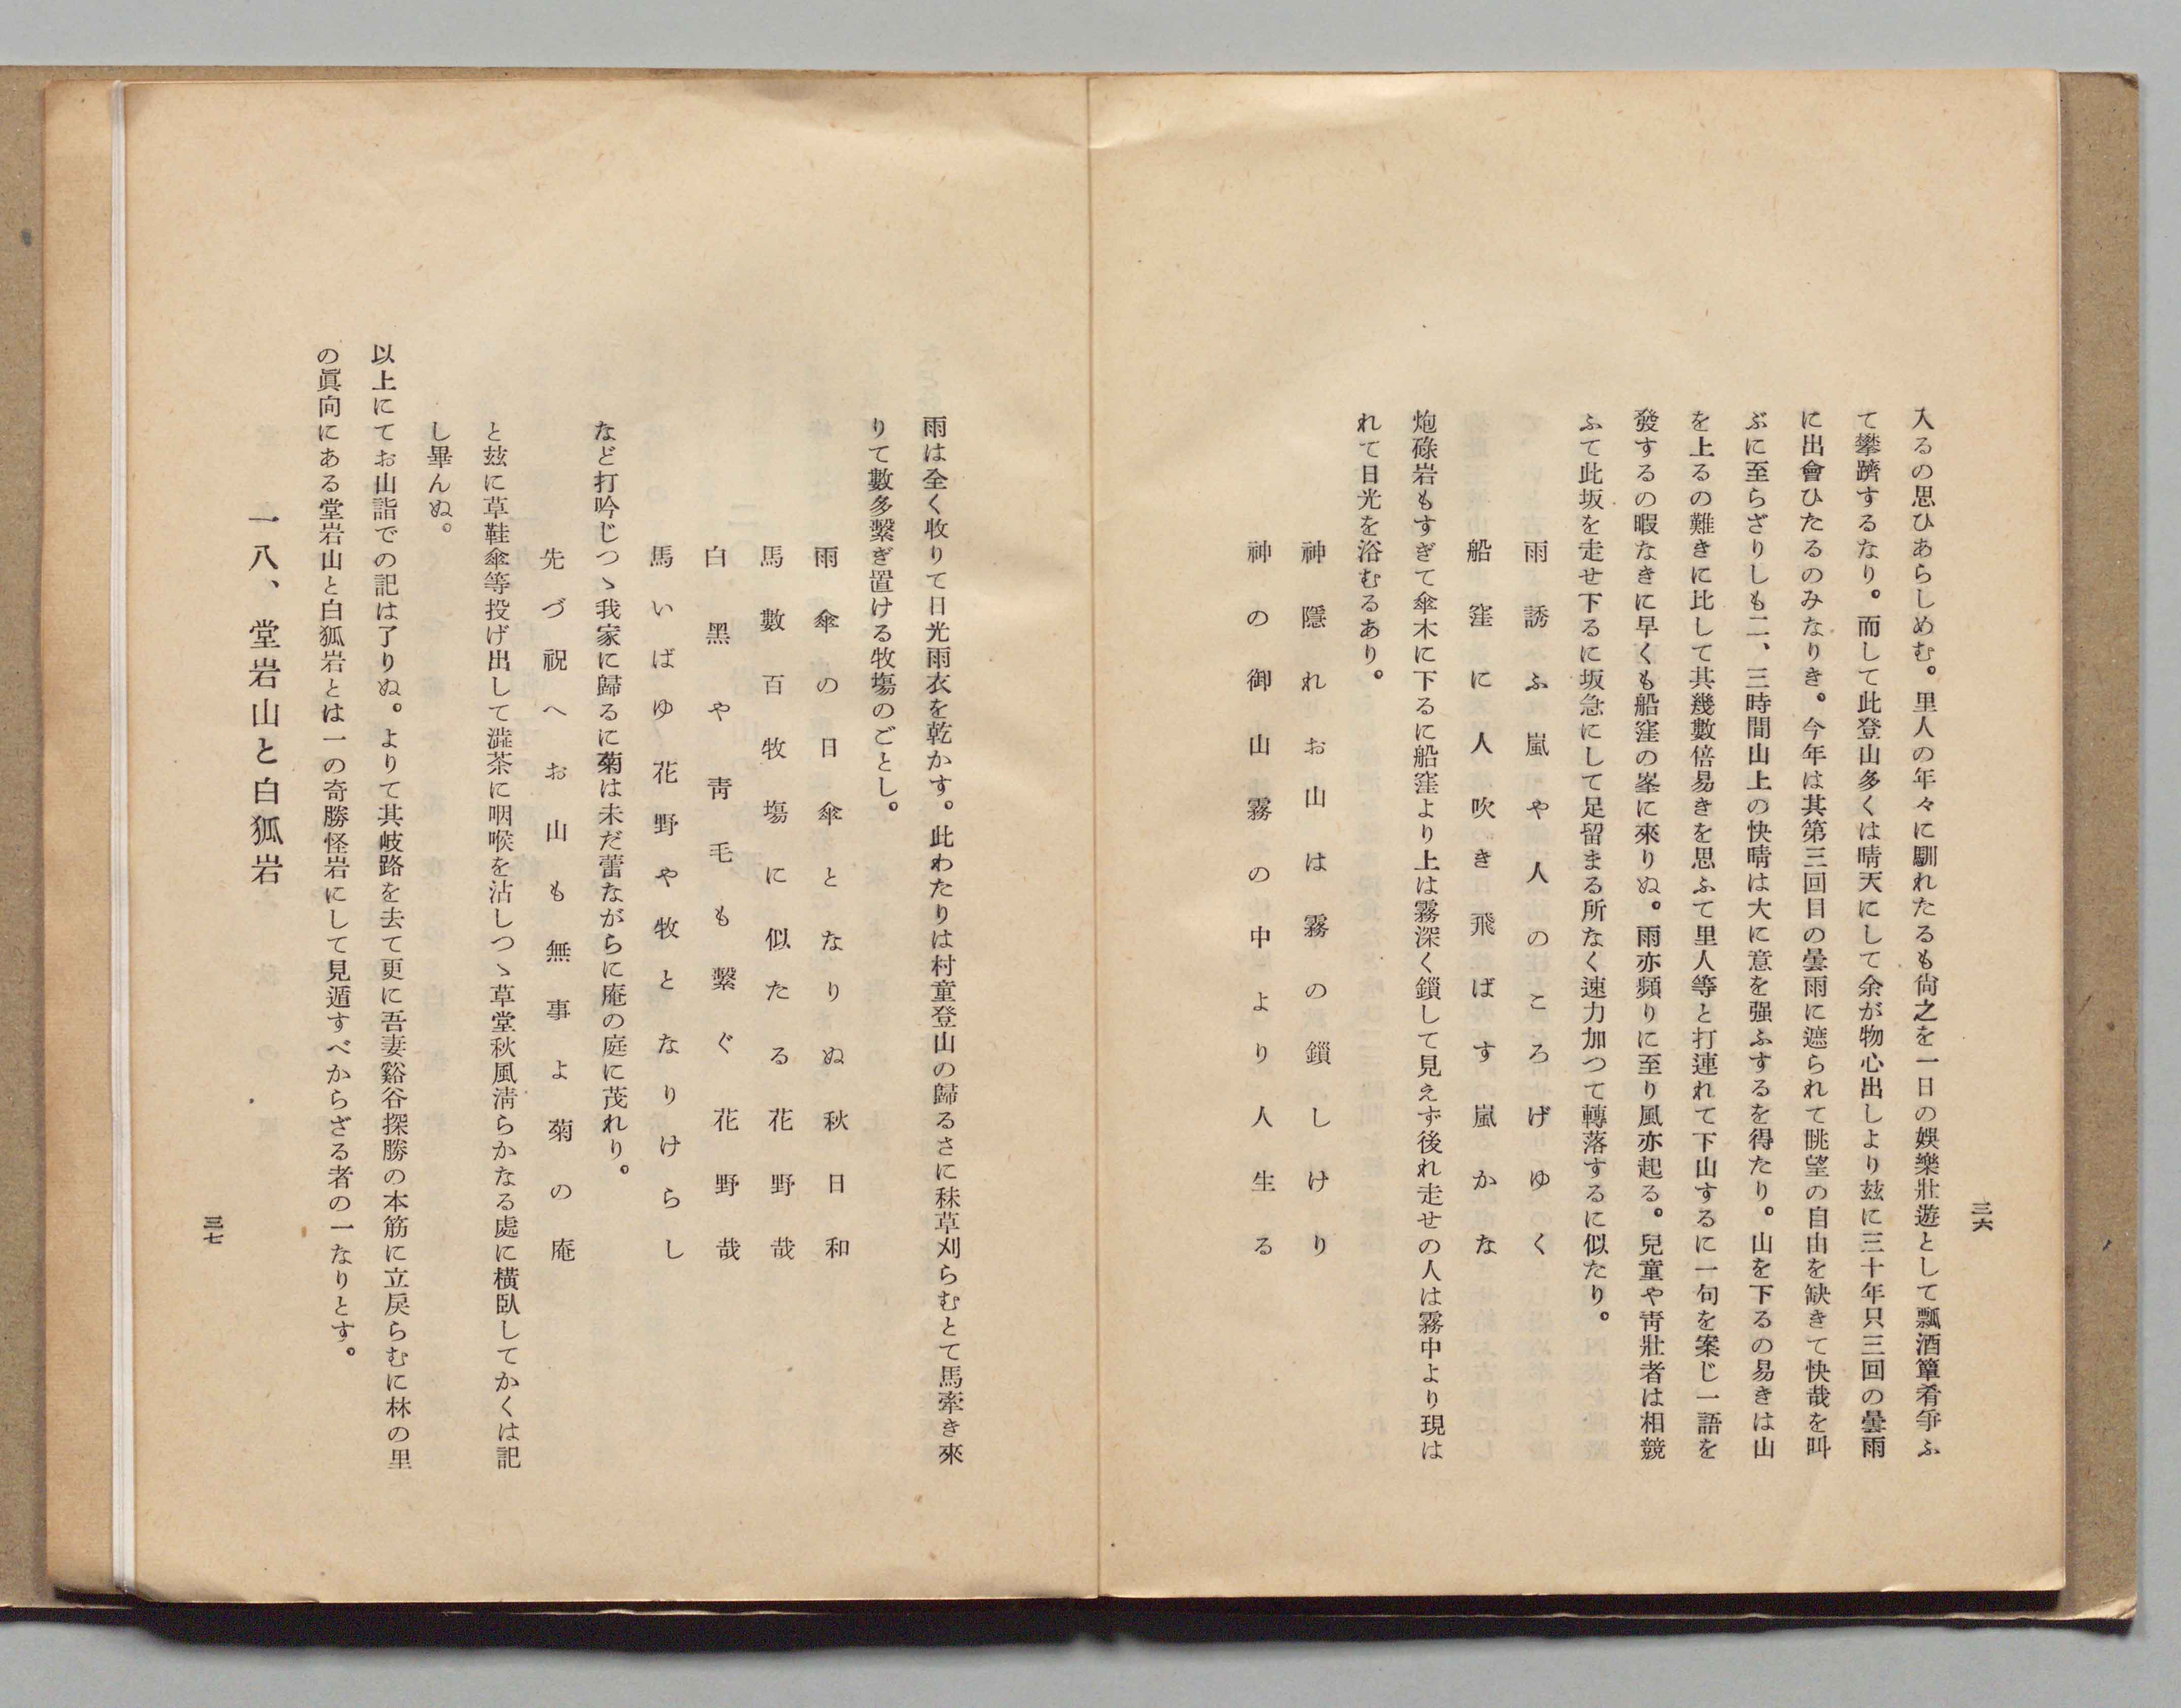 三六
入るの思ひあらしめむ。里人の年々に馴れたるも尙之を一日の娛樂壯遊として瓢酒簞肴爭ふ
て攀躋するなり。而して此登山多くは晴天にして余が物心出しより玆に三十年只三回の曇雨
に出會ひたるのみなりき。今年は其第三回目の曇雨に遮られて眺望の自由を缺きて快哉を叫
ぶに至らざりしも二、三時間山上の快晴は大に意を强ふするを得たり。山を下るの易きは山
を上るの難きに比して其幾數倍易きを思ふて里人等と打連れて下山するに一句を案じ一語を
發するの暇なきに早くも船窪の峯に來りぬ。雨亦頻りに至り風亦起る。兒童や靑壯者は相競
ふて此坂を走せ下るに坂急にして足留まる所なく速力加つて轉落するに似たり。
雨誘ふ嵐や人のころげゆく
船窪に人吹き飛ばす嵐かな
炮碌岩もすぎて傘木に下るに船窪より上は霧深く鎖して見えず後れ走せの人は霧中より現は
れて日光を浴むるあり。
神隱れお山は霧の鎖しけり
神の御山霧の中より人生る
雨は全く收りて日光雨衣を乾かす。此わたりは村童登山の歸るさに秣草刈らむとて馬牽き來
りて數多繫ぎ置ける牧塲のごとし。
雨傘の日傘となりぬ秋日和
馬數百牧塲に似たる花野哉
白黑や靑毛も繫ぐ花野哉
馬いばゆく花野や牧となりけらし
など打吟じつゝ我家に歸るに菊は未だ蕾ながらに庵の庭に茂れり。
先づ祝へお山も無事よ菊の庵
と玆に草鞋傘等投げ出して澁茶に咽喉を沾しつゝ草堂秋風淸らかなる處に橫臥してかくは記
し畢んぬ。
以上にてお山詣での記は了りぬ。よりて其岐路を去て更に吾妻谿谷探勝の本筋に立戾らむに林の里
の眞向にある堂岩山と白狐岩とは一の奇勝怪岩にして見遁すべからざる者の一なりとす。
一八、堂岩山と白狐岩
三七